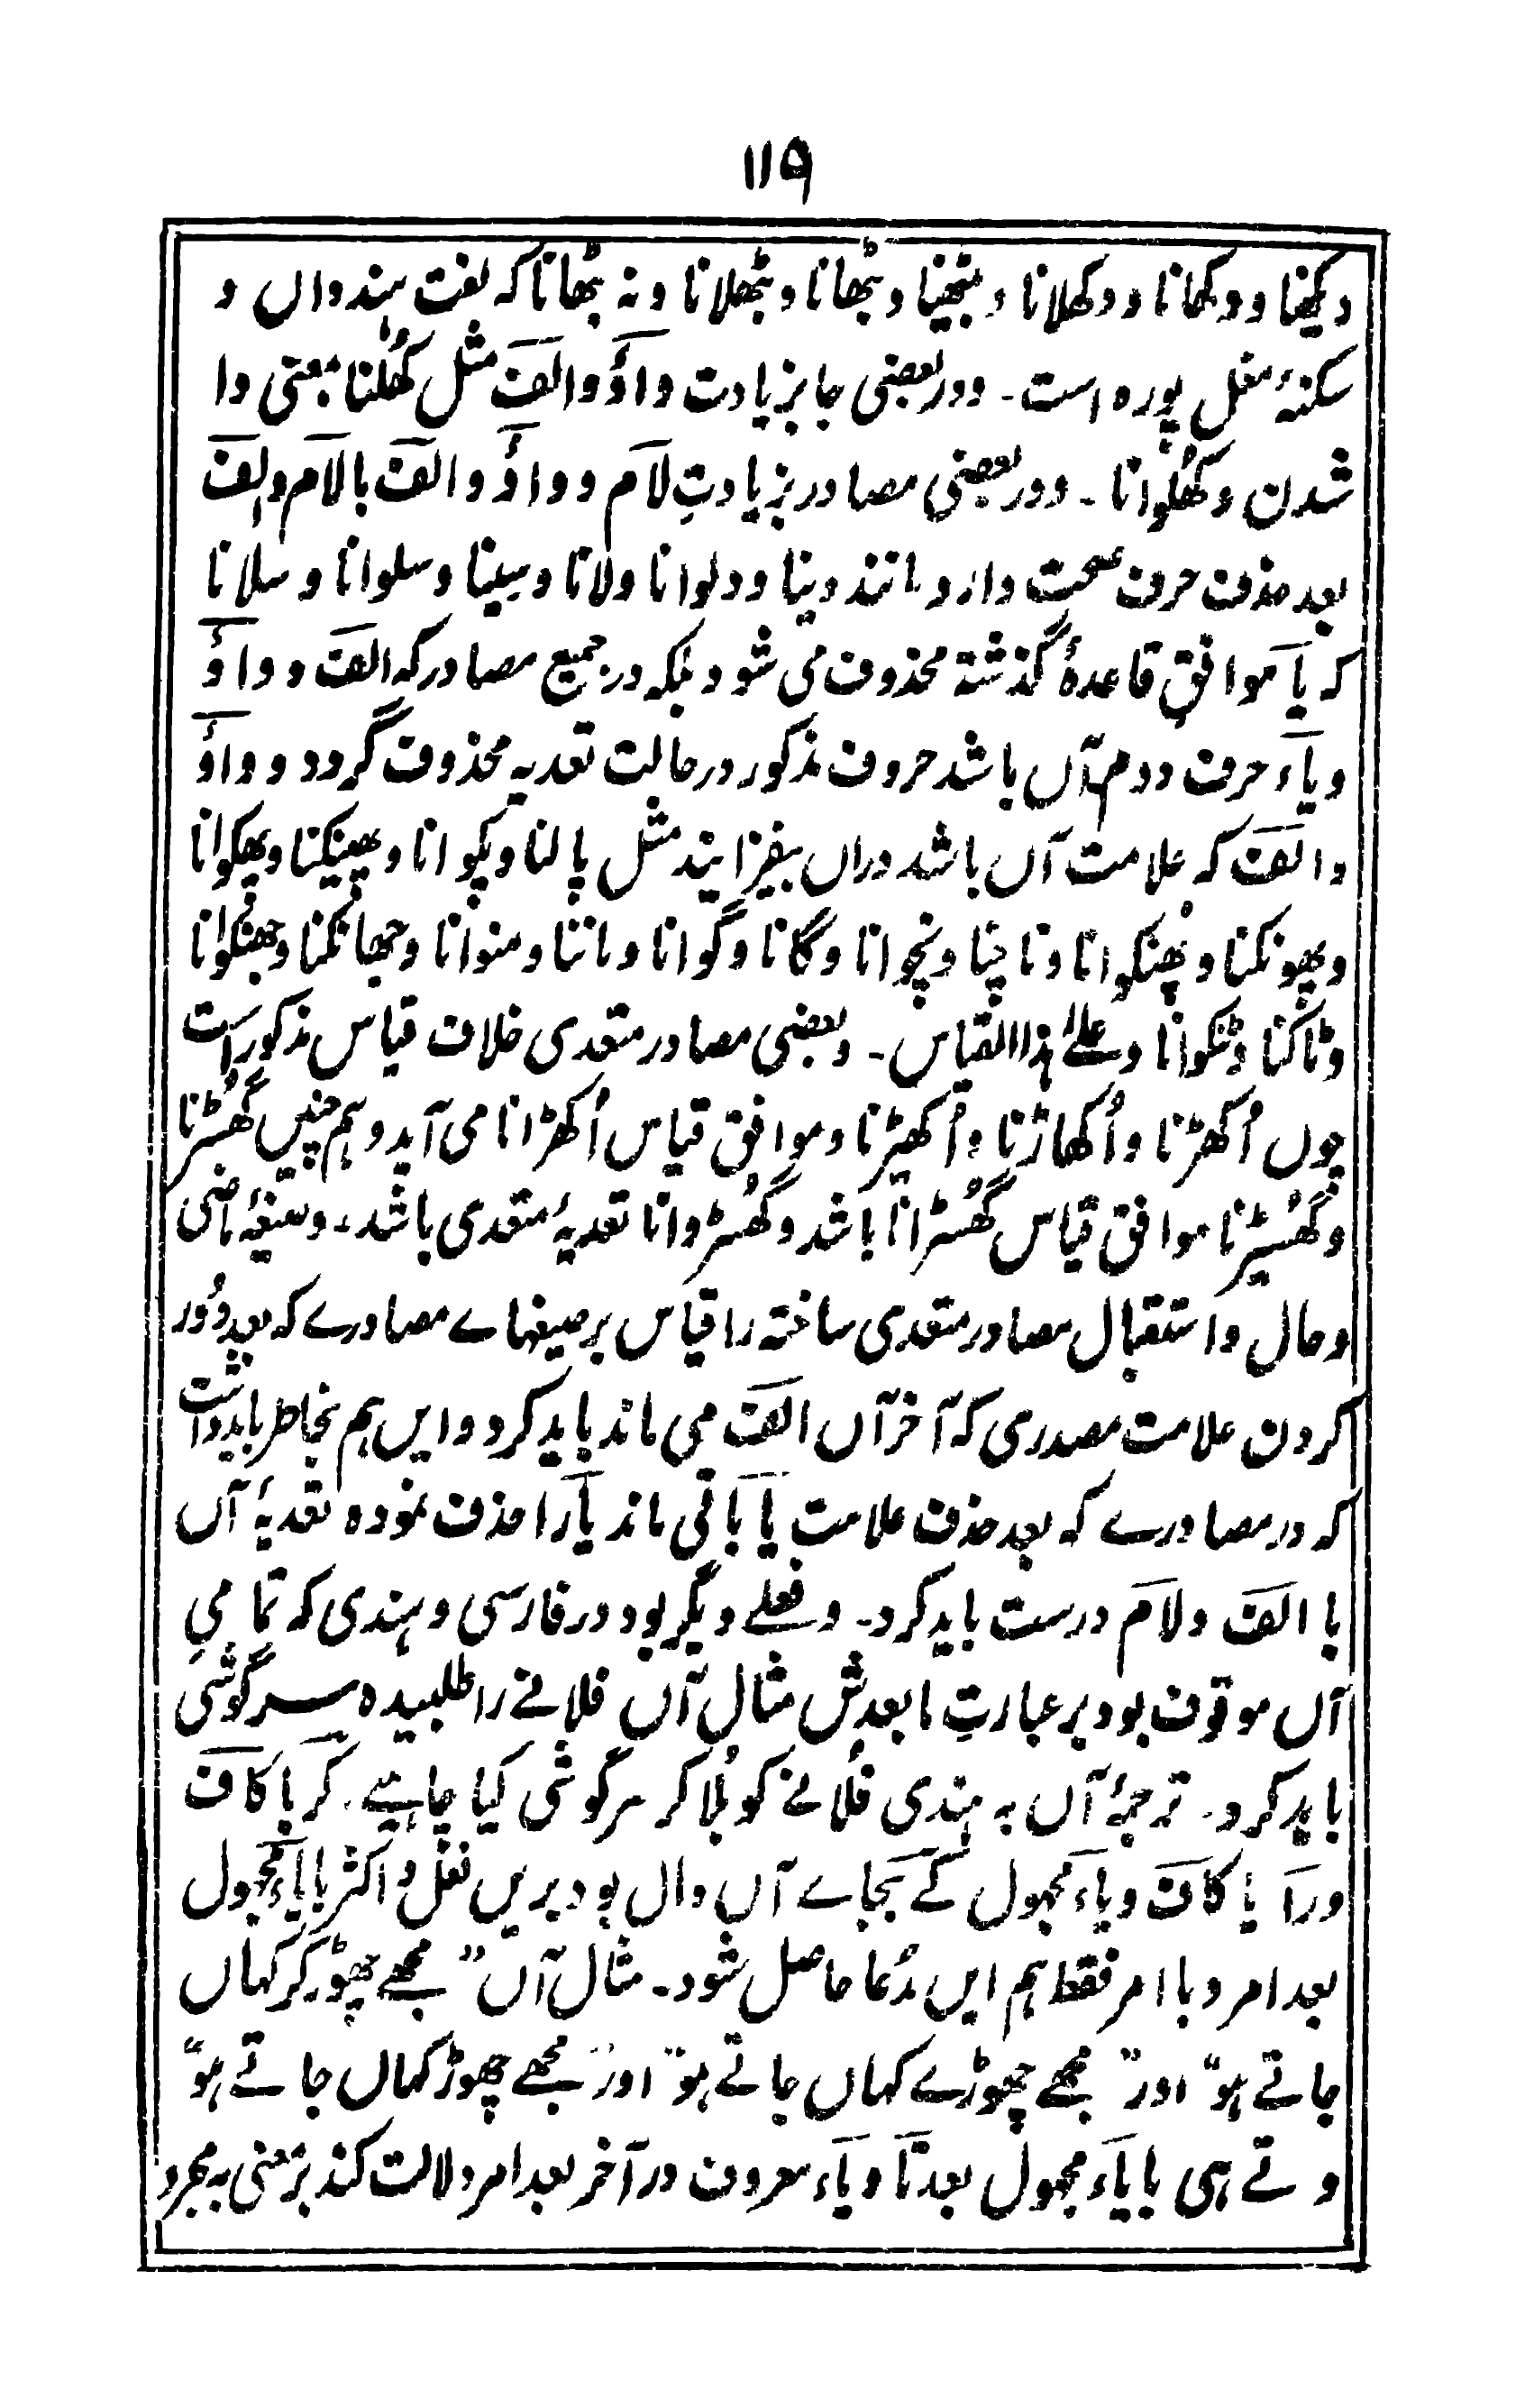 ۱۱۹
دیکھنا و دکھانا و دکھلانا و بیٹھنا و بٹھانا و بٹھلانا و نہ بٹھانا کہ لغت ہندواں و
سکنۂ مغل پورہ است۔ و در بعضی جا بزیادت واؤ و الف مثل کھُلنا بمعنی وا
شدن و کھُلوانا۔ و در بعضی مصادر بزیادتِ لام و واؤ و الف بالام والف
بعد حذف حرف صحت دارد مانند دینا و دلوانا و دلانا و سینا و سلوانا و سلانا
کہ یا موافق قاعدۂ گذشتہ محذوف می شود بلکہ در جمیع مصادر کہ الف و واؤ
و یاء حرف دوم آں باشد حروف مذکور در حالت تعدیہ محذوف گردد و واؤ
و الف کہ علامت آں باشد دراں بیفزایند مثل پالنا و پلوانا و پھینکنا و پھکوانا
و پھونکنا و پھنکوانا و ناچنا و نچوانا و گانا و گوانا و ماننا و منوانا و جھانکنا و جھنکوانا
و ٹانکنا و ٹنکوانا و علیٰ ہذا القیاس۔ و بعضی مصادر متعدی خلاف قیاس مذکور است
چوں اُکھڑنا و اُکھاڑنا و اُکھیڑنا و موافق قیاس اُکھڑانا می آید و ہم چنیں گھُسڑنا
و گھُسیڑنا موافق قیاس گھُسڑانا باشد و گھُسڑوانا تعدیۂ متعدی باشد۔ و صیغۂ ماضی
و حال و استقبال مصادر متعدی ساختہ را قیاس بر صیغہاے مصادرے کہ بعد دُور
کردن علامت مصدری کہ آخر آں الف می ماند باید کرد و ایں ہم بخاطر باید داشت
کہ در مصادرے کہ بعد حذف علامت یا باقی ماند یا را حذف نمودہ تعدیۂ آں
با الف و لام درست باید کرد۔ و فعلے دیگر بود در فارسی و ہندی کہ تمامیِ
آں موقوف بود بر عبارتِ مابعدش مثال آں فلانے را طلبیدہ سرگوشی
باید کرد۔ ترجمۂ آں بہ ہندی فُلانے کو بُلا کر سرگوشی کیا چاہیے۔ کر با کاف
و را یا کاف و یاء مجہول کے بجاے آں دال بود بریں فعل و اکثر با یاء مجہول
بعد امر و با امر فقط ہم ایں مدّعا حاصل شود۔ مثال آں ”مجھے چھوڑ کر کہاں
جاتے ہو“ اور ”مجھے چھوڑے کہاں جاتے ہو“ اور ”مجھے چھوڑ کہاں جاتے ہو“
و تے ہی با یاء مجہول بعد تا و یاء معروف در آخر بعد امر دلالت کند بر معنی بہ مجرد